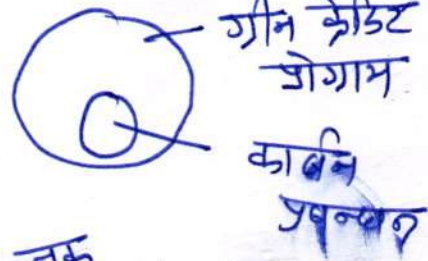 ग्रीन क्रेडिट
प्रोग्राम
कार्बन
प्रबन्धन